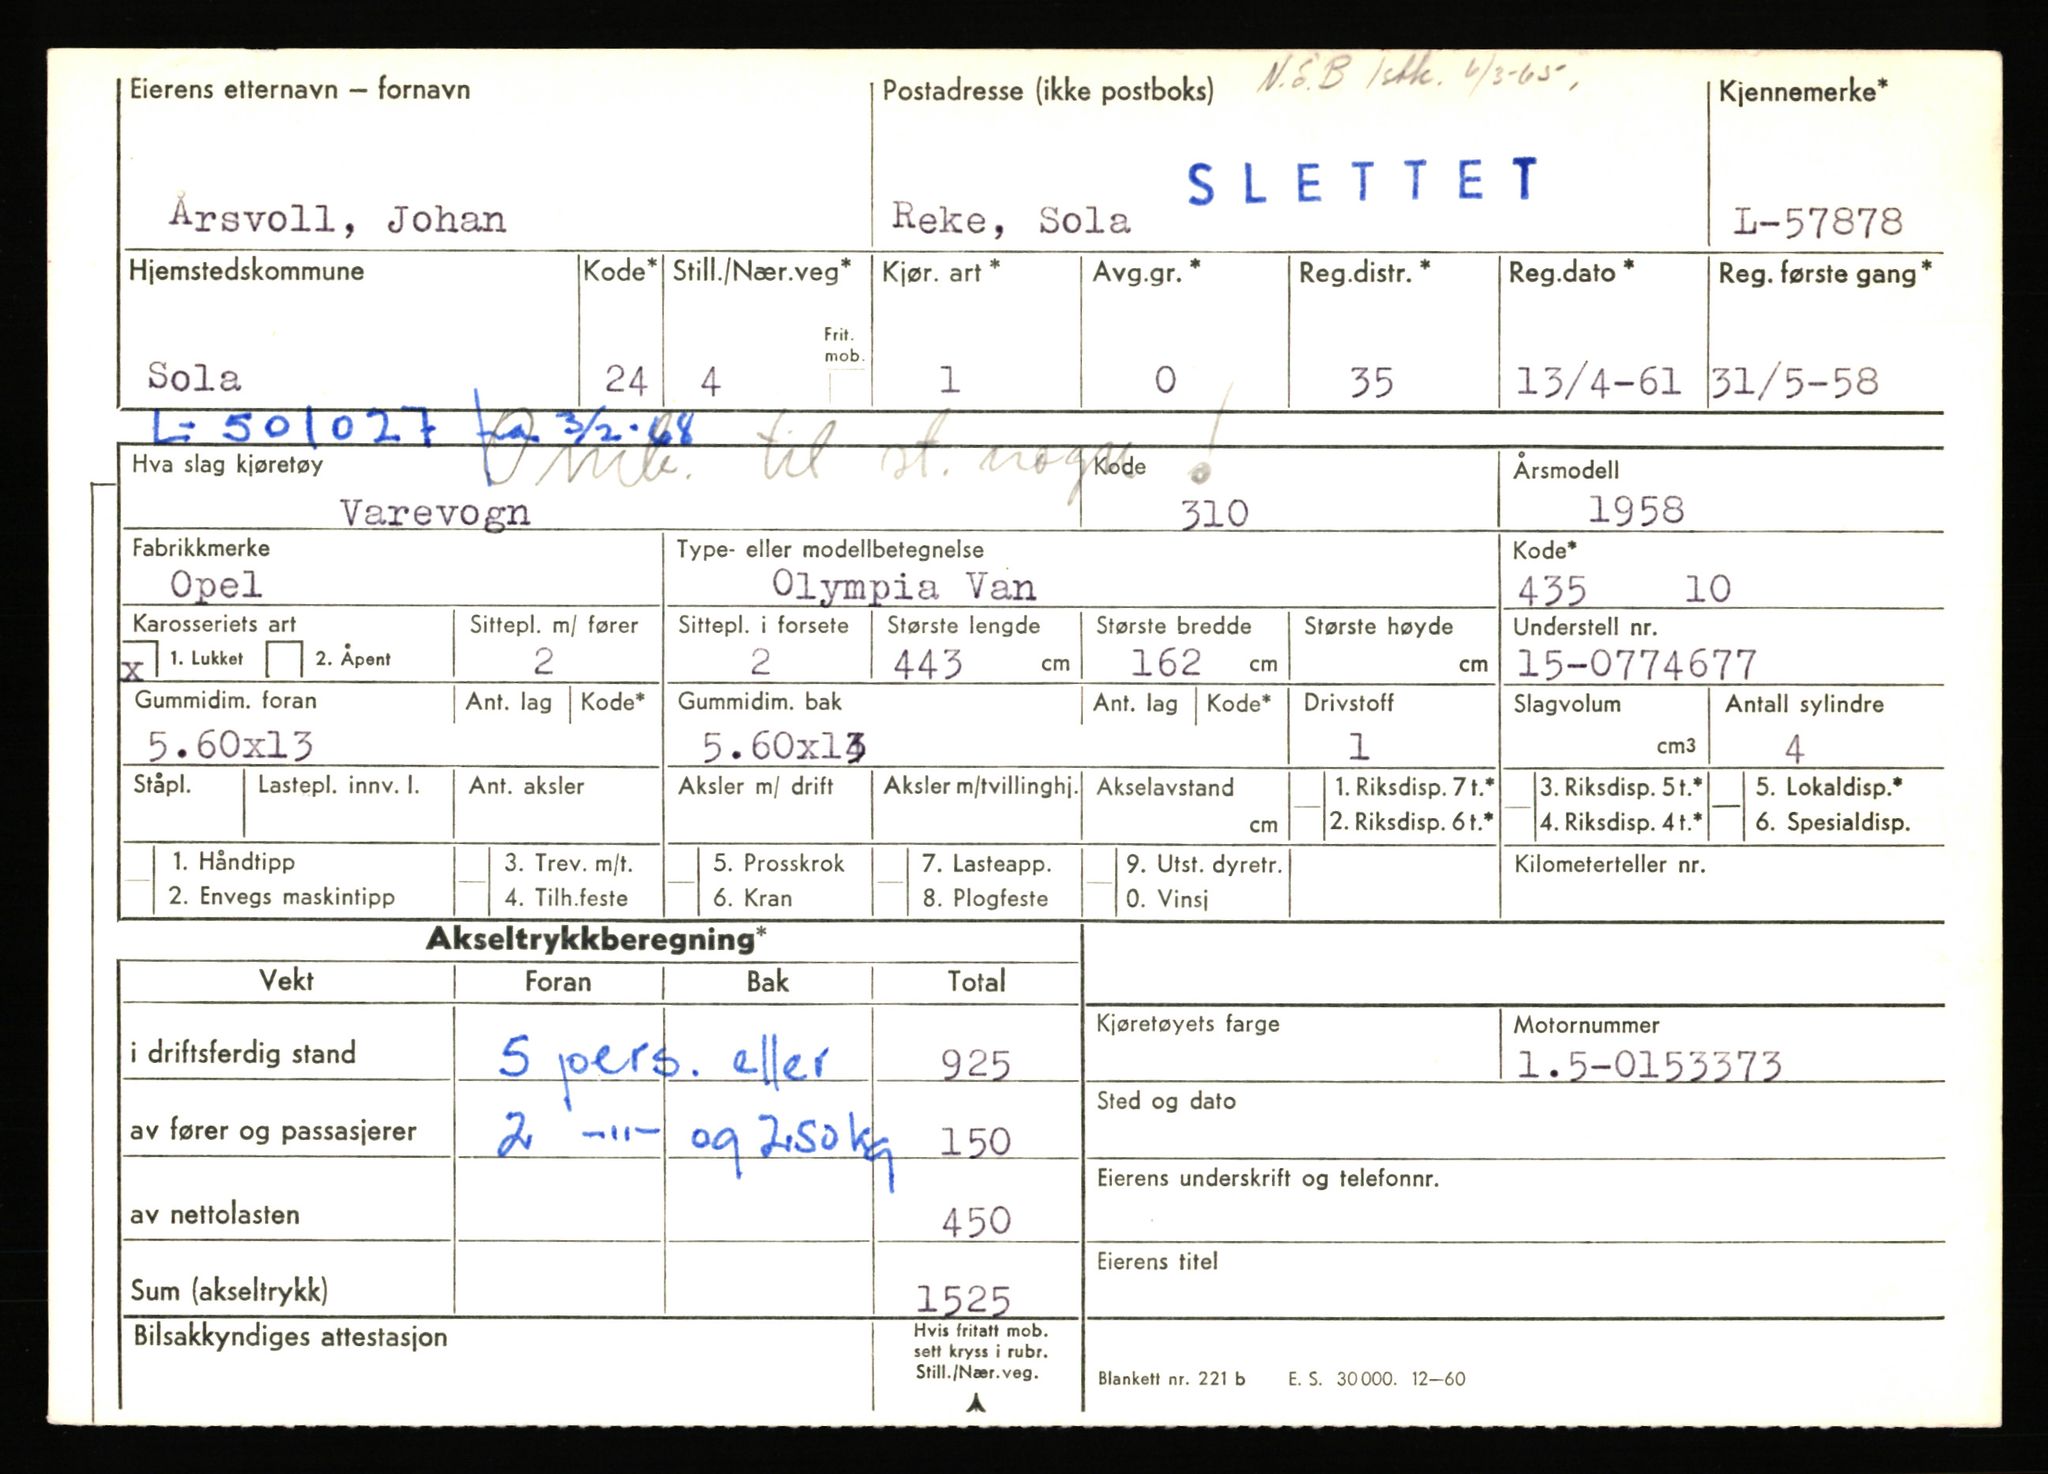 N.E.B 1stk. 6/3-65,
Eierens etternavn – fornavn Postadresse (ikke postboks) Kjennemerke*
SLETTET
Årsvoll, Johan Reke, Sola L-57878
Hjemstedskommune Kode* Still./Nær.veg* Kjør. art* Avg.gr.* Reg.distr.* Reg.dato* Reg. første gang*
Frit.
mob.
Sola 24 4 1 0 35 13/4-61 31/5-58
L-501027 fra 3/2-68
Omb. til st. vogn!
Hva slag kjøretøy Kode Årsmodell
Varevogn 310 1958
Fabrikkmerke Type- eller modellbetegnelse Kode*
Opel Olympia Van 435 10
Karosseriets art Sittepl. m/ fører Sittepl. i forsete Største lengde Største bredde Største høyde Understell nr.
x 1. Lukket 2. Åpent 2 2 443 cm 162 cm cm 15-0774677
Gummidim. foran Ant. lag Kode* Gummidim. bak Ant. lag Kode* Drivstoff Slagvolum Antall sylindre
5.60x13 5.60x13 1 cm3 4
Ståpl. Lastepl. innv. l. Ant. aksler Aksler m/ drift Aksler m/tvillinghj. Akselavstand 1. Riksdisp. 7 t.* 3. Riksdisp. 5 t.* 5. Lokaldisp.*
cm 2. Riksdisp. 6 t.* 4. Riksdisp. 4 t.* 6. Spesialdisp.
1. Håndtipp 3. Trev. m/t. 5. Prosskrok 7. Lasteapp. 9. Utst. dyretr. Kilometerteller nr.
2. Envegs maskintipp 4. Tilh.feste 6. Kran 8. Plogfeste 0. Vinsj
Akseltrykkberegning*
Vekt Foran Bak Total
Kjøretøyets farge Motornummer
i driftsferdig stand 5 pers. eller 925 1.5-0153373
Sted og dato
av fører og passasjerer 2 -"- og 250 kg 150
Eierens underskrift og telefonnr.
av nettolasten 450
Eierens titel
Sum (akseltrykk) 1525
Bilsakkyndiges attestasjon Hvis fritatt mob.
sett kryss i rubr.
Still./Nær.veg.
Blankett nr. 221 b E. S. 30 000. 12–60